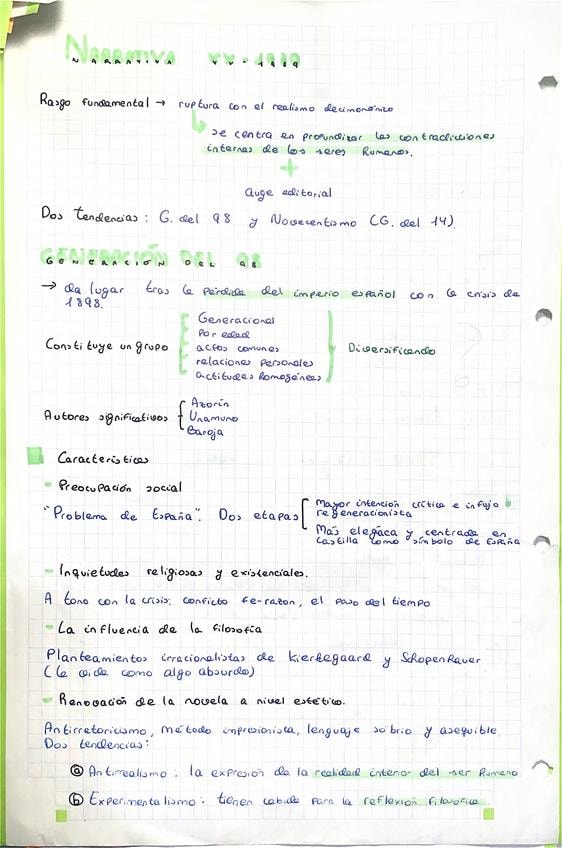 NARRATIVA XX-1939
Rasgo fundamental → ruptura con el realismo decimonónico
se centra en profundizar las contradicciones
internas de los seres humanos.
+
Auge editorial
Dos tendencias: G. del 98 y Novecentismo (G. del 14).
GENERACIÓN DEL 98
→ da lugar tras la pérdida del imperio español con la crisis de
1898.
Constituye un grupo
Generacional
Por edad
actos comunes
relaciones personales
actitudes homogéneas
Diversificando
?
Autores significativos
Azorín
Unamuno
Baroja
Características
- Preocupación social
"Problema de España". Dos etapas
Mayor intención crítica e influjo
regeneracionista
Más elegíaca y centrada en
Castilla como símbolo de España
- Inquietudes religiosas y existenciales.
A tono con la crisis: conflicto fe-razon, el paso del tiempo
- La influencia de la filosofía
Planteamientos irracionalistas de Kierkegaard y Schopenhauer
(la vida como algo absurdo)
- Renovación de la novela a nivel estético.
Antirretoricismo, método impresionista, lenguaje sobrio y asequible.
Dos tendencias:
ⓐ Antirrealismo: la expresión de la realidad interior del ser humano
ⓑ Experimentalismo: tienen cabida para la reflexión filosófica.